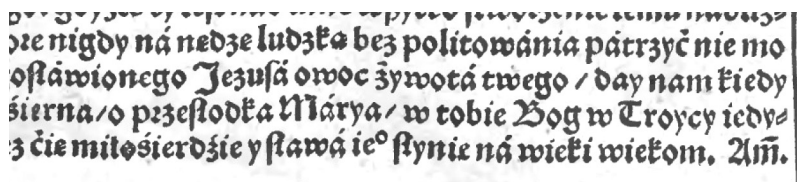 ore nigdy ná nedze ludzką bez politowánia pátrzyć nie mo
ostáwionego Jezusá owoc żywotá twego / day nam kiedy
śierna / o przesłodka Márya / w tobie Bog w Troycy iedy⸗
z ćie miłośierdźie y sławá ieº słynie ná wieki wiekom. Am̄.